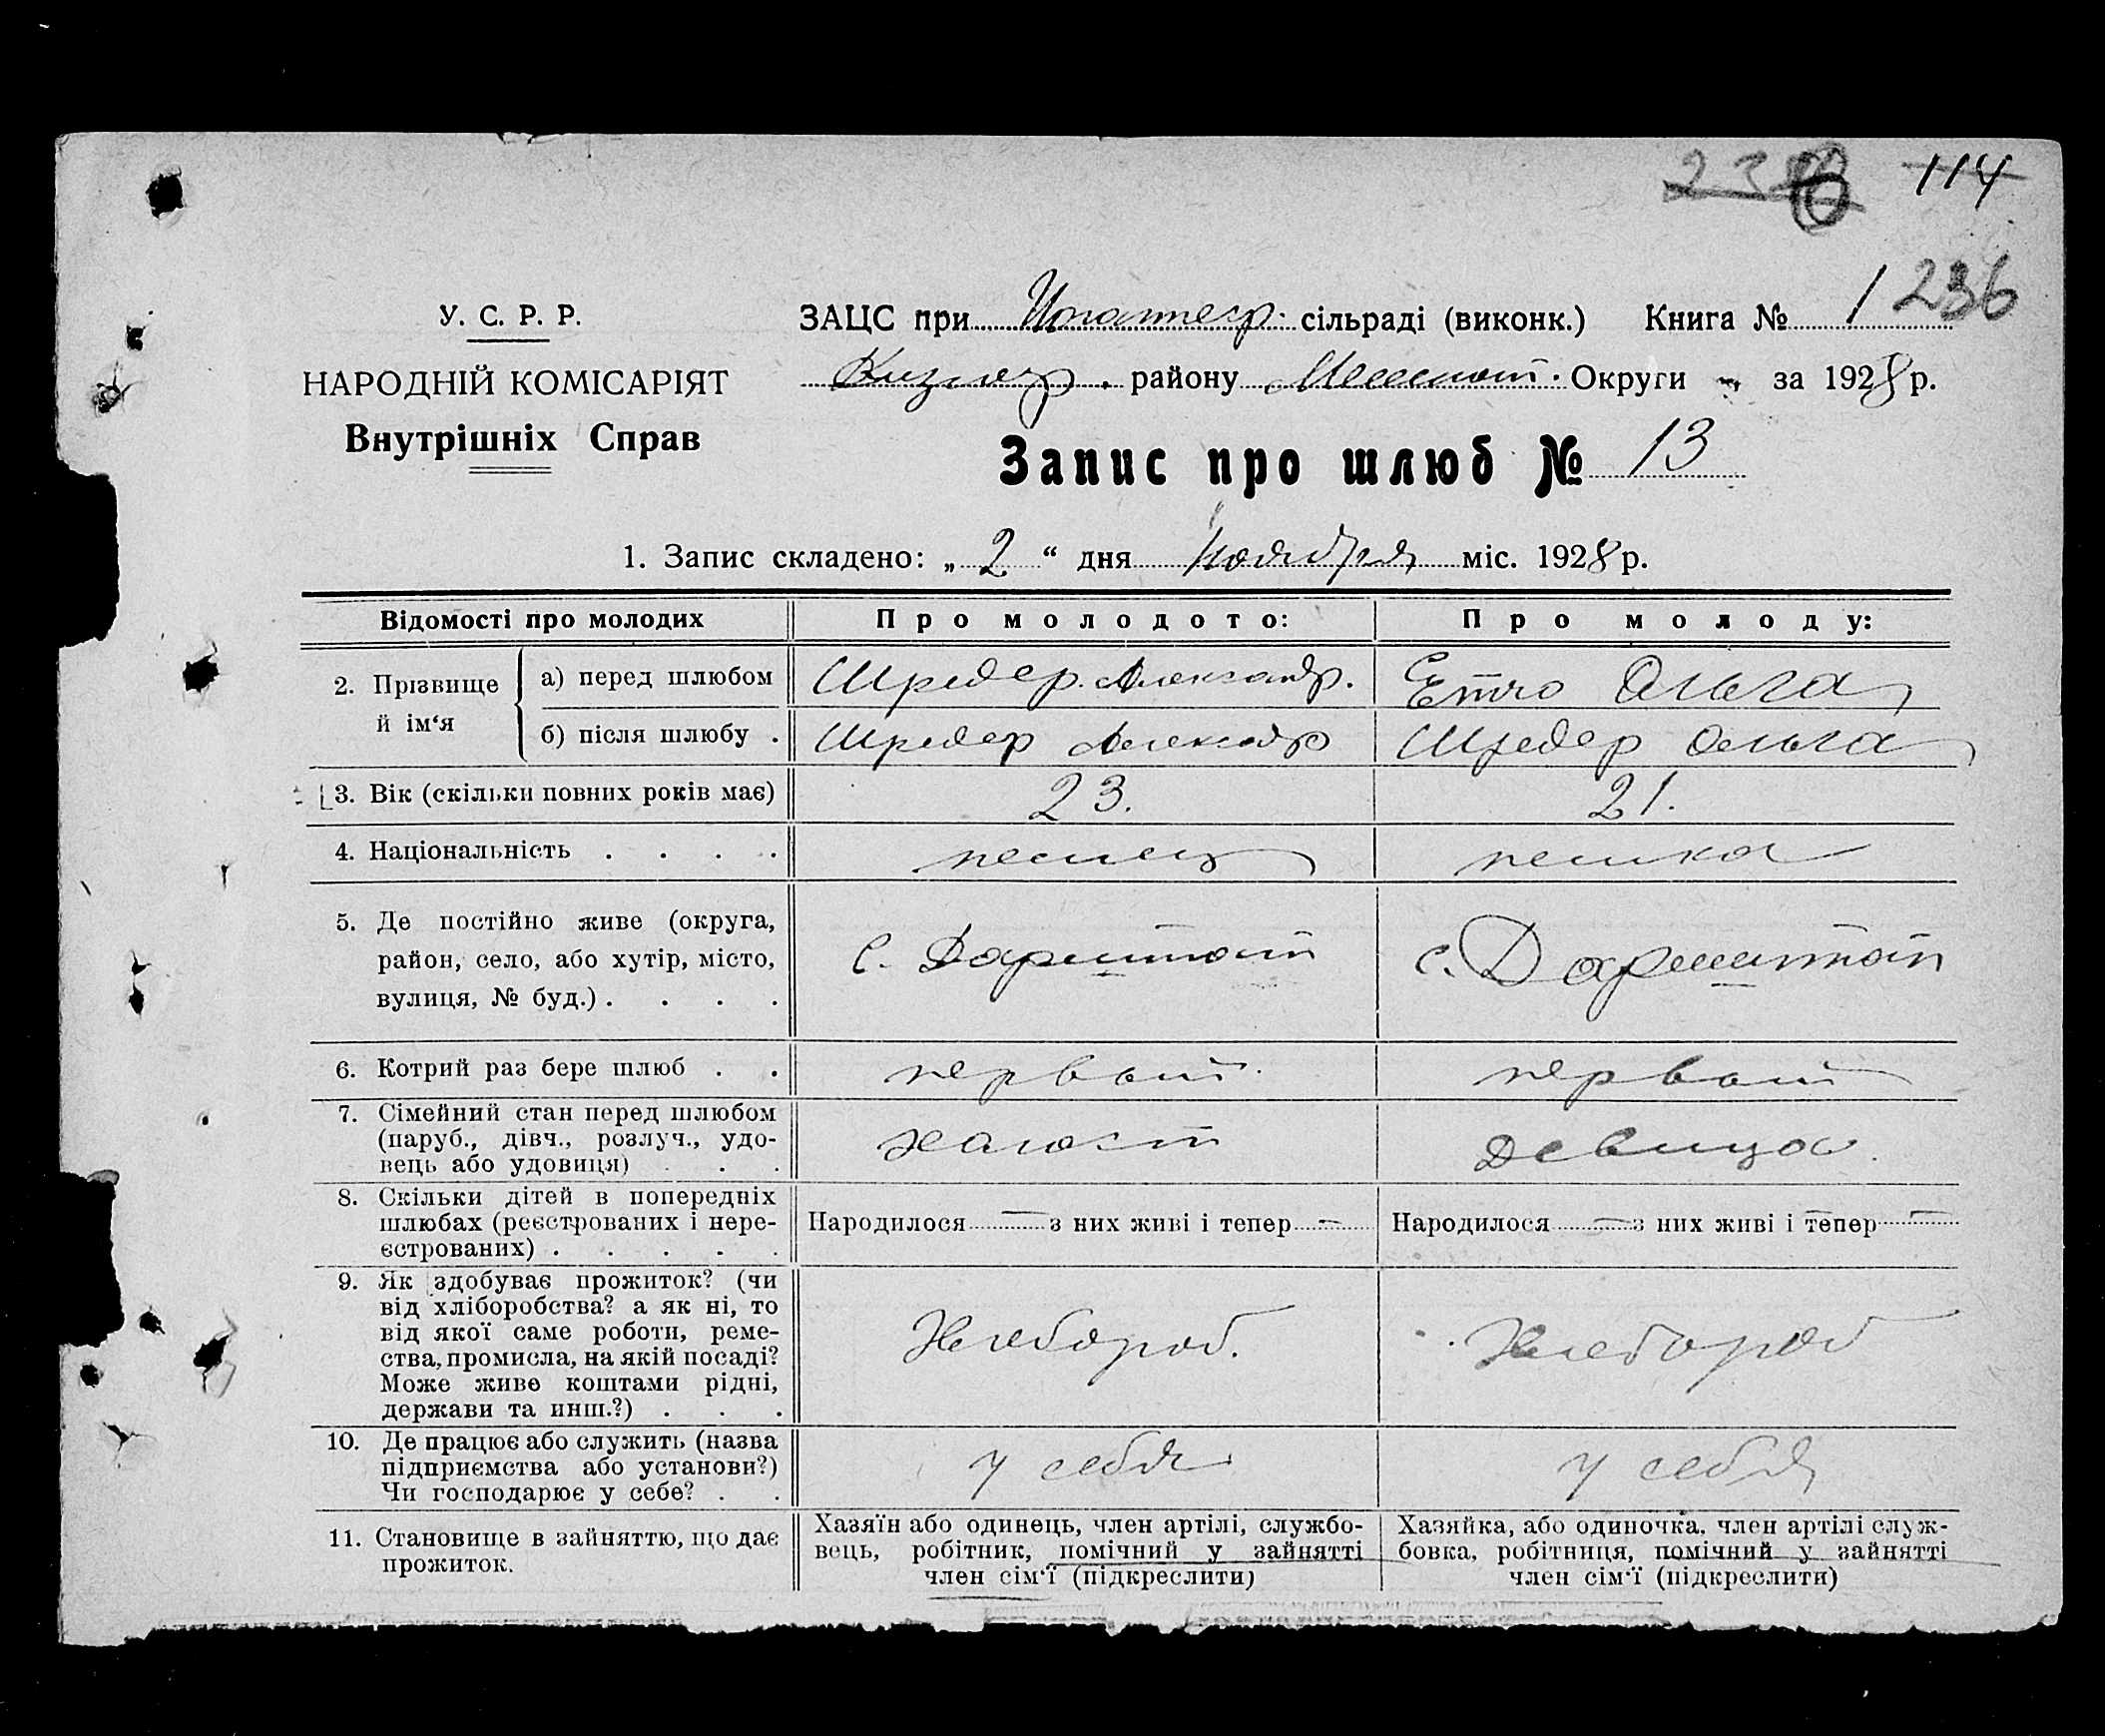 238 114
У. С. Р. Р.
ЗАЦС при сільраді (виконк.) Книга № 1 236
НАРОДНІЙ КОМІСАРІЯТ
району Округи за 1928 р.
Внутрішніх Справ
Запис про шлюб № 13
1. Запис складено: „ 2 “ дня Ноября міс. 1928 р.
Відомості про молодих
Про молодого:
Про молоду:
2. Прізвище й ім‘я
а) перед шлюбом
Шредер Александр.
Ольга
б) після шлюбу .
Шредер Александр
Шредер Ольга
3. Вік (скільки повних років має)
23.
21.
4. Національність . . . .
немец
немка
5. Де постійно живе (округа,
район, село, або хутір, місто,
вулиця, № буд.) . . . .
с. Дармштат
с. Дармштат
6. Котрий раз бере шлюб . .
первый.
первый
7. Сімейний стан перед шлюбом
(паруб., дівч., розлуч., удо-
вець або удовиця) . . .
холост
девица.
8. Скільки дітей в попередніх
шлюбах (реєстрованих і нере-
єстрованих) . . . . .
Народилося — з них живі і тепер —
Народилося — з них живі і тепер —
9. Як здобуває прожиток? (чи
від хліборобства? а як ні, то
від якої саме роботи, реме-
ства, промисла, на якій посаді?
Може живе коштами рідні,
держави та инш.?) . . .
Хлебороб.
Хлебороб
10. Де працює або служить (назва
підприємства або установи?)
Чи господарює у себе? . .
у себя
у себя
11. Становище в зайняттю, що дає
прожиток.
Хазяїн або одинець, член артілі, службо-
вець, робітник, помічний у зайнятті
член сім‘ї (підкреслити)
Хазяйка, або одиночка, член артілі служ-
бовка, робітниця, помічний у зайнятті
член сім‘ї (підкреслити)